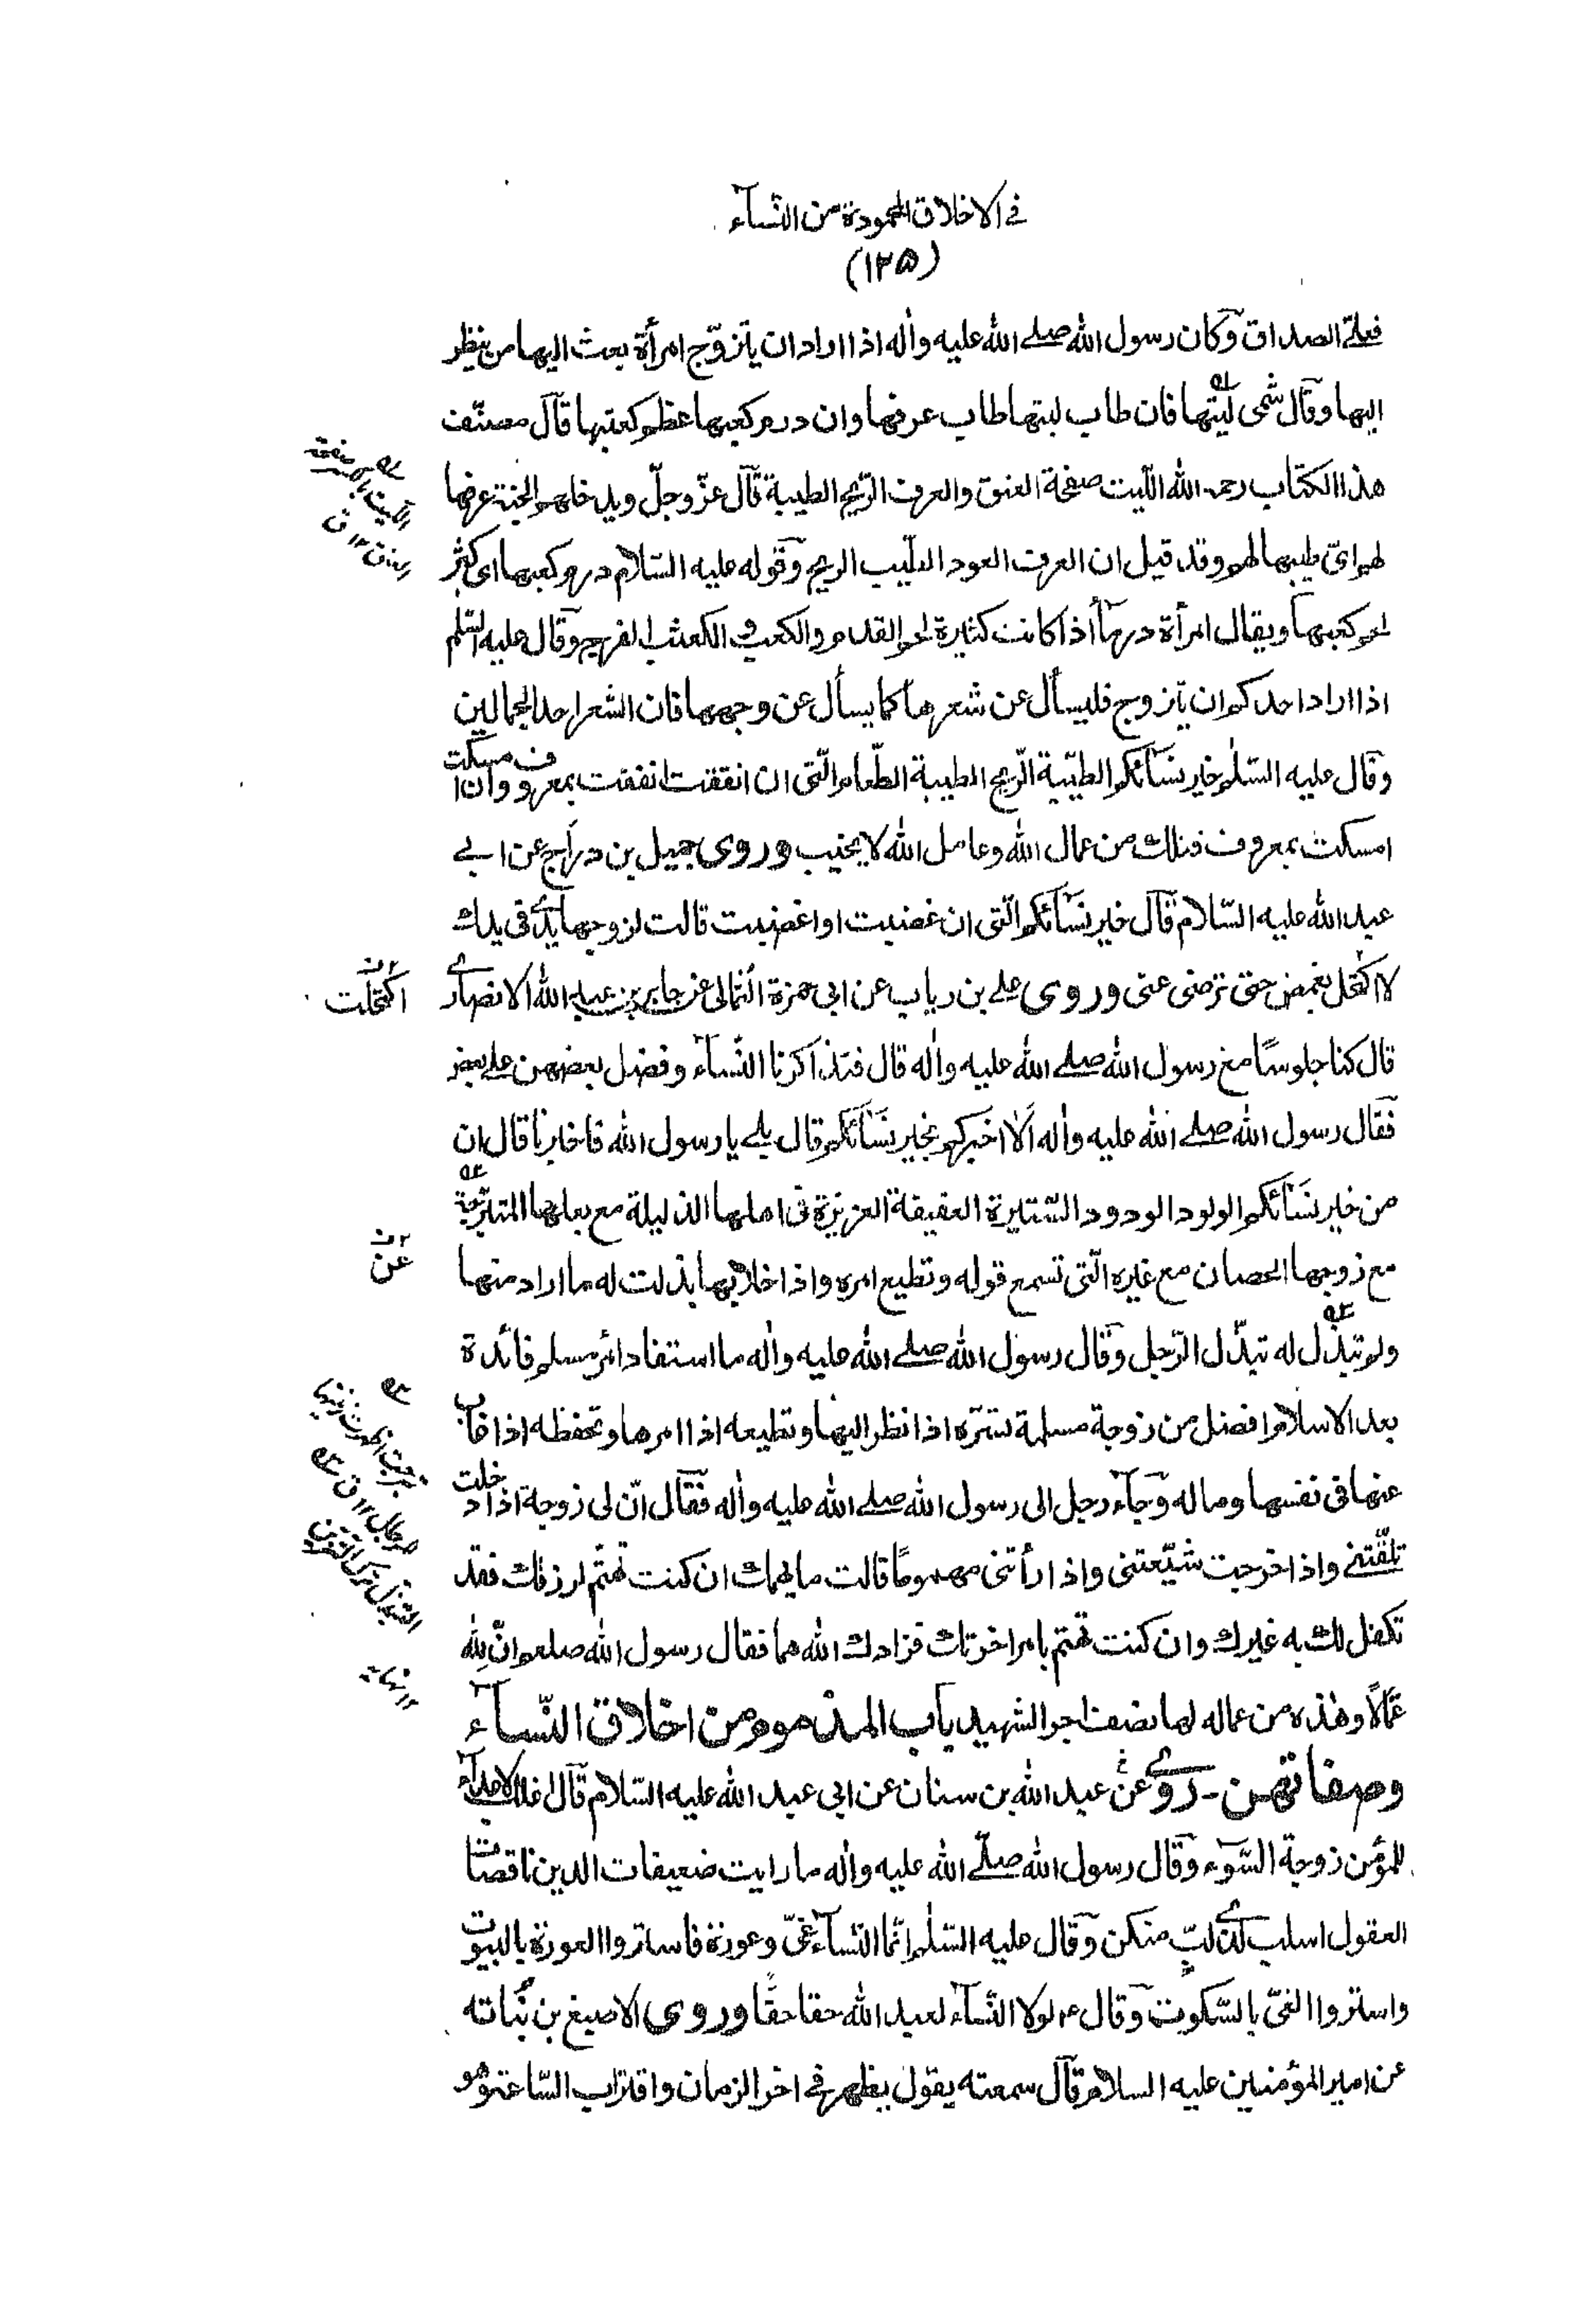 في الاخلاق المحمودة من النسآء
(١٢٥)
فعليّ الصداق وَكان رسول الله صلے الله عليه واٰله اذا اراد ان يتزوّج امرأة بعث اليها من ينظر
اليها وقال شمّى ليتها فان طاب ليتها طاب عرفها وان درم كعبها عظم كعثبها قآل مصنّف
هذا الكتاب رحمه الله اللّيت صفحة العنق والعرف الرّيح الطيبة قآل عزّ وجلّ ويدخلهم الجنة عرفها
لهم ایّ طيبها لهم وقد قيل ان العرف العود الطيّب الريح وَقوله عليه السّلام درم كعبها ای كثر
لحم كعبها ويقال امرأة درمآ اذا كانت كثيرة لحم القدم والكعب والكعثب الفرج وَقال عليه السّلٰم
اذا اراد احدكم ان يتزوج فليسأل عن شعرها كما يسأل عن وجهها فان الشعر احد الجمالين
وقال عليه السّلٰم خير نسآئكم الطيّبة الرّيح الطيبة الطّعام الّتى ان انفقت انفقت بمعروف وان امسكت
امسكت بمعروف فتلك من عمال الله وعامل الله لا يخيب وروى جميل بن درّاج عن ابے
عبد الله عليه السّلام قآل خير نسآئكم الّتى ان غضبت او اغضبت قالت لزوجها يدے فى يدك
لا اكتحل بغمض حتى ترضى عنى وروى علے بن رياب عن ابى حمزة الثمالى عن جابر بن عبد الله الانصارے
قال كنا جلوسًا مع رسول الله صلے الله عليه واٰله قال فتذاكرنا النّسآء وفضل بعضهن علے بعض
فقال رسول الله صلے الله عليه واٰله اَلا اخبركم بخير نسآئكم قال بلے يا رسول الله فاخبرنا قال ان
من خير نسآئكم الولود الودود السّتيرة العفيفة العزيزة فى اهلها الذليلة مع بعلها المتبرّجة
مع زوجها الحصان مع غيره الّتى تسمع قوله وتطيع امره واذا خلا بها بذلت له ما اراد منها
ولم تبذّل له تبذّل الرّجل وقال رسول الله صلے الله عليه واٰله ما استفاد امرء مسلم فائدة
بعد الاسلام افضل من زوجة مسلمة تسرّه اذا نظر اليها وتطيعه اذا امرها وتحفظه اذا غاب
عنها فى نفسها وماله وَجآء رجل الى رسول الله صلے الله عليه واٰله فقال انّ لى زوجة اذا دخلت
تلقّتنے واذا خرجت شيّعتنى واذا رأتنى مهمومًا قالت ما يهمك ان كنت تهتم لرزقك فقد
تكفل لك به غيرك وان كنت تهتم بامر اخرتك فزادك الله هما فقال رسول الله صلعم انّ لِلّٰه
عمّالًا وهٰذه من عماله لها نصف اجر الشهيد باب المذموم من اخلاق النّسآء
وصفاتهن - روے عن عبد الله بن سنان عن ابى عبد الله عليه السّلام قآل اغلب الاعدآء
للمؤمن زوجة السّوء وَقال رسول الله صلّے الله عليه واٰله ما رايت ضعيفات الدين ناقصات
العقول اسلب لذے لبّ منكن وَقال عليه السّلٰم انّما النّسآء عىّ وعورة فاستروا العورة بالبيوت
واستروا العىّ بالسّكوت وَقال ع لولا النّسآء لعبد الله حقا حقًّا وروى الاصبغ بن نُباته
عن امير المؤمنين عليه السلام قآل سمعته يقول يظهر فے اخر الزمان واقتراب السّاعة وهو
اكتحلت
عن